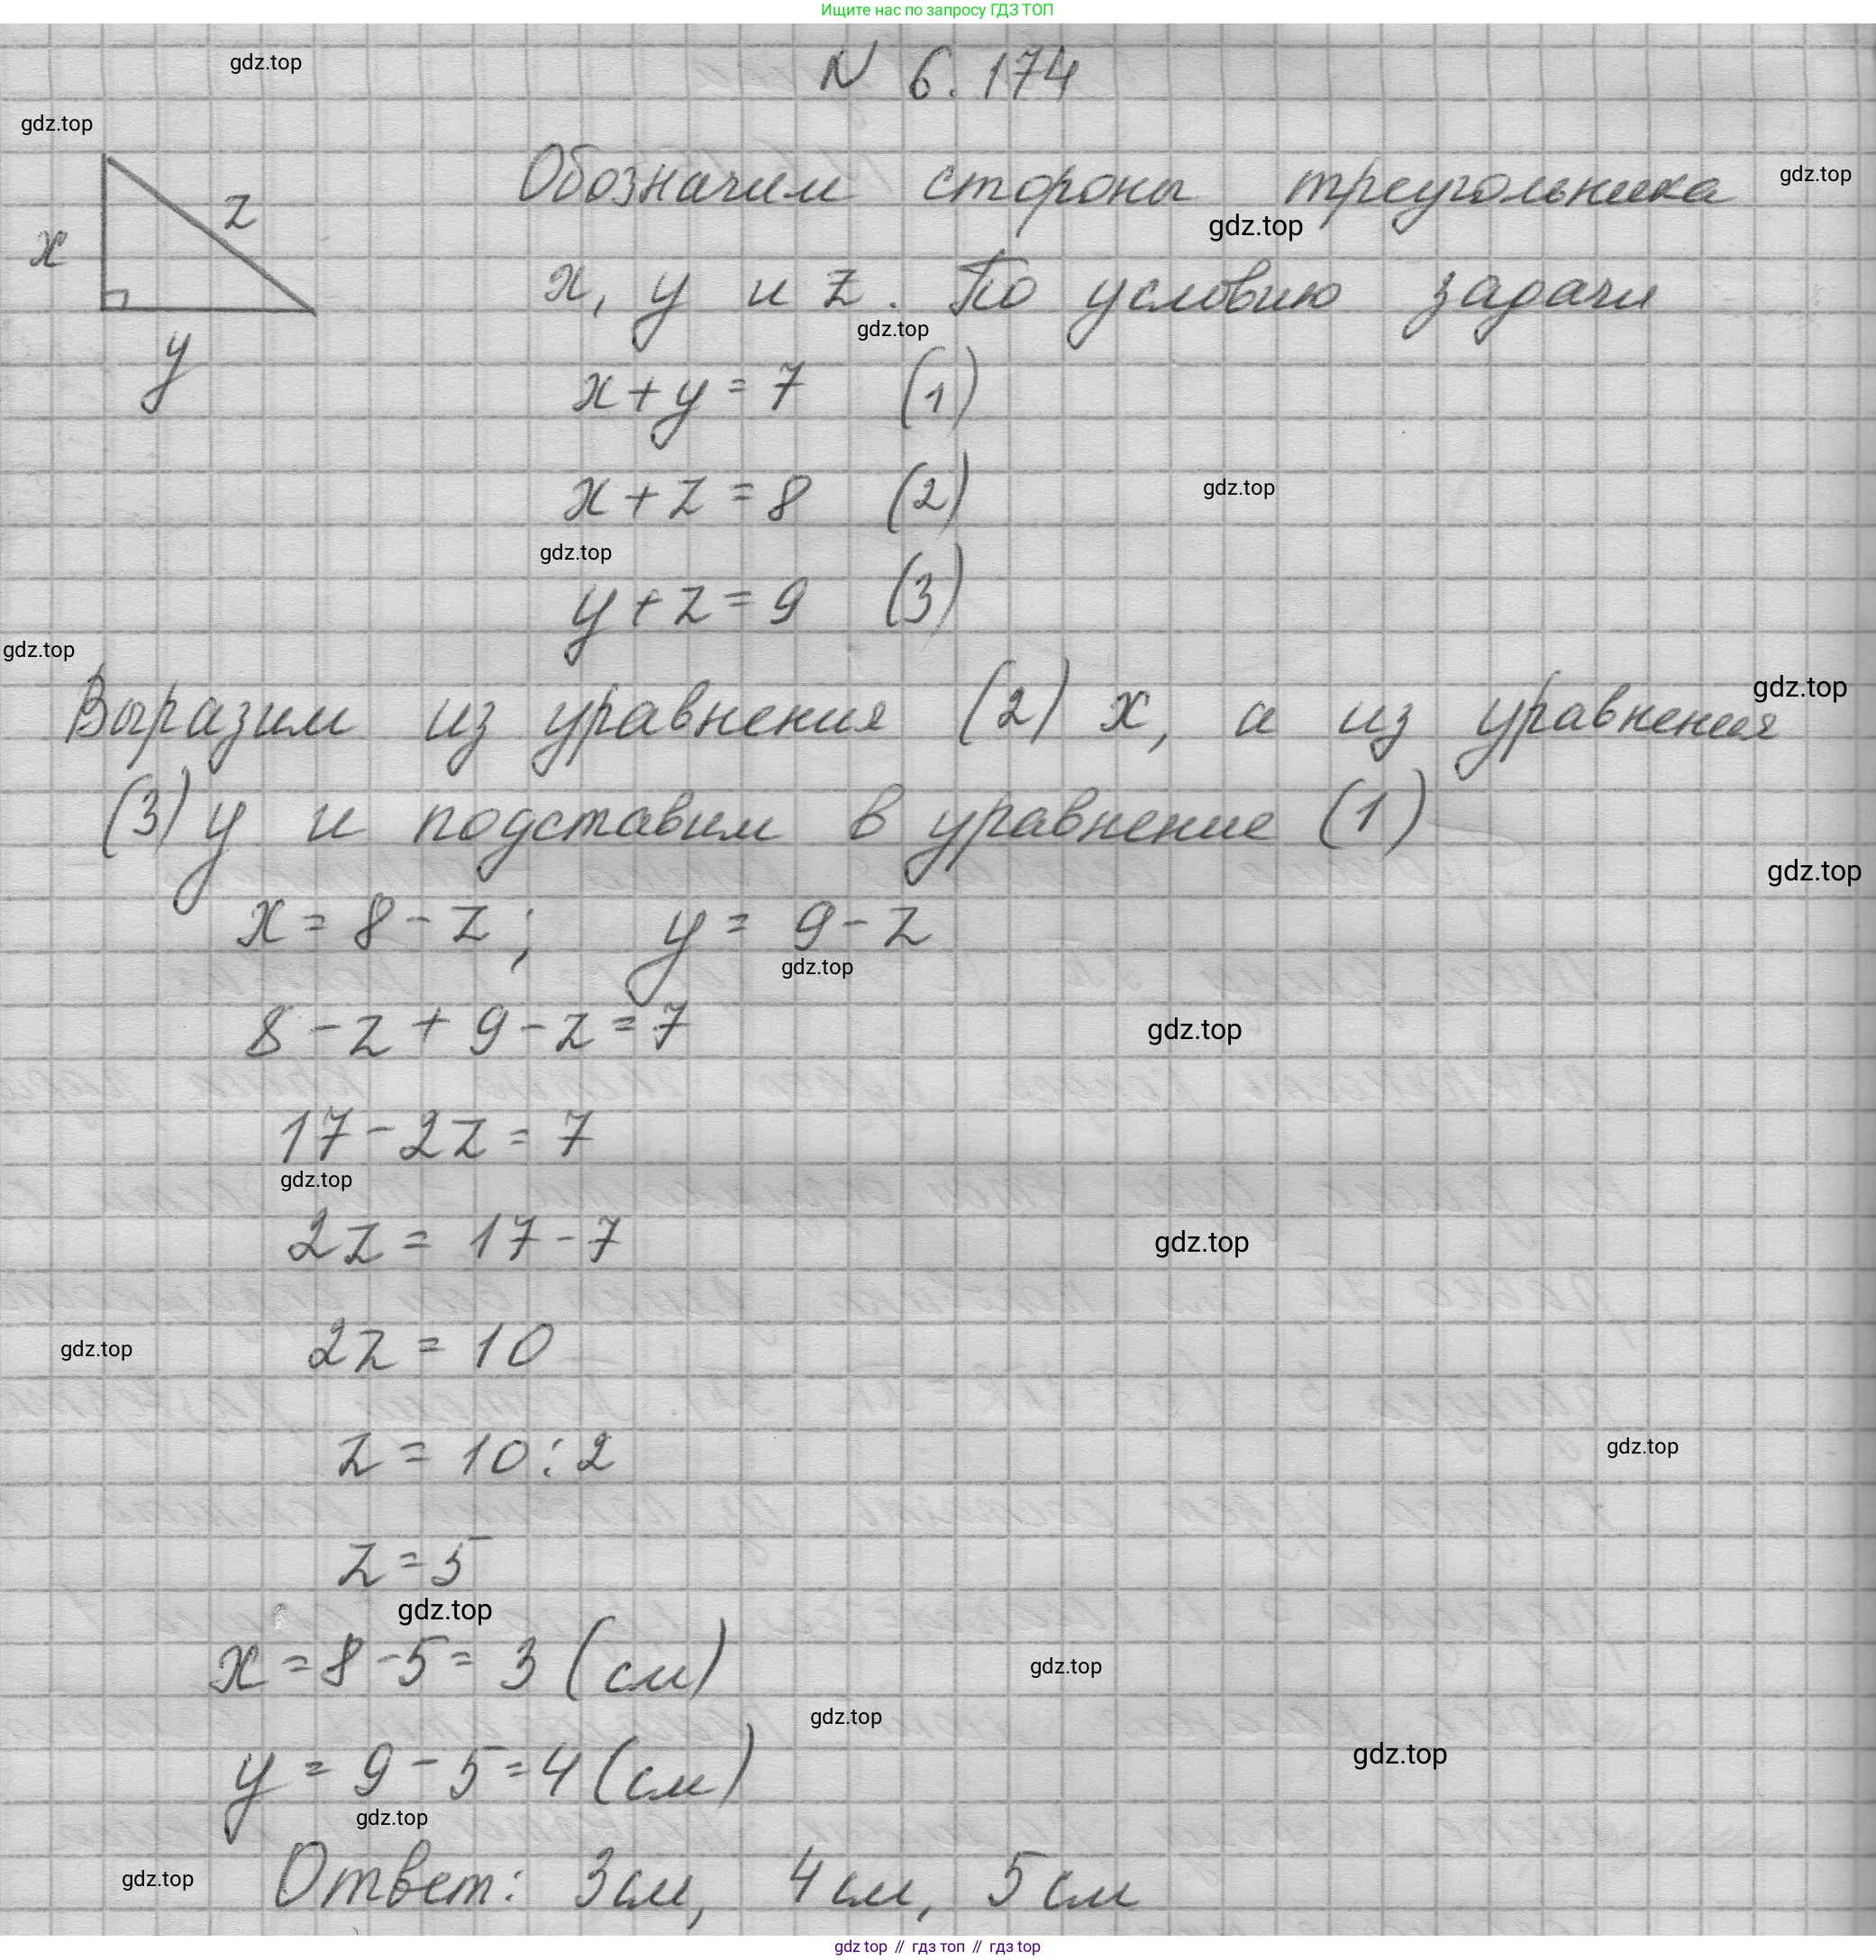 Ищите нас по запросу ГДЗ ТОП
N 6.174
gdz.top
gdz.top
Обозначим стороны треугольника
gdz.top
z
gdz.top
x
x, y и z. По условию задачи
gdz.top
y
x+y=7 (1)
x+z=8 (2)
gdz.top
gdz.top
y+z=9 (3)
gdz.top
gdz.top
Выразим из уравнения (2) x, а из уравнения
(3) y и подставим в уравнение (1)
gdz.top
x = 8-z; y = 9-z
gdz.top
8-z+9-z=7
gdz.top
17-2z=7
gdz.top
2z = 17-7
gdz.top
2z = 10
gdz.top
z = 10:2
gdz.top
z=5
gdz.top
x=8-5=3 (см)
gdz.top
gdz.top
y = 9-5=4 (см)
gdz.top
gdz.top
Ответ: 3см, 4см, 5см
gdz.top
gdz top // гдз топ // гдз top